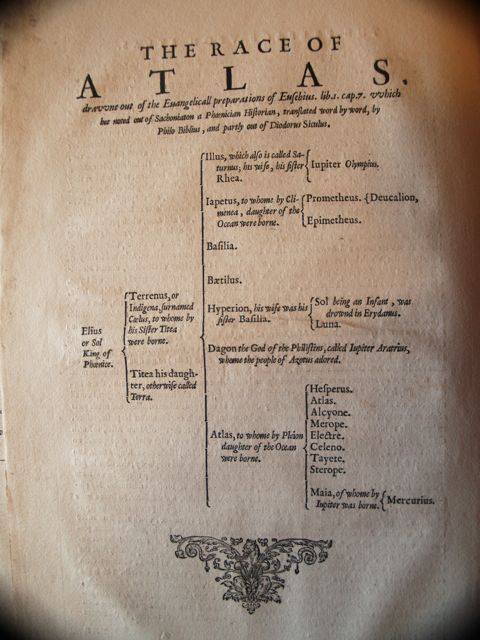 THE RACE OF
ATLAS.
dravvne out of the Euangelicall preparations of Eusebius. lib.1. cap.7. vvhich
hee noted out of Sachoniaton a Phœnician Historian, translated word by word, by
Philo Biblius, and partly out of Diodorus Siculus.
Elius
or Sol
King of
Phœnice.
Terrenus, or
Indigena, surnamed
Cœlus, to whome by
his Sister Titea
were borne.
Titea his daugh-
ter, otherwise called
Terra.
Illus, which also is called Sa-
turnus; his wife, his sister
Rhea.
Iupiter Olympius.
Iapetus, to whome by Cli-
menea, daughter of the
Ocean were borne.
Prometheus.
Deucalion,
Epimetheus.
Basilia.
Bætilus.
Hyperion, his wife was his
sister Basilia.
Sol being an Infant, was
drownd in Erydanus.
Luna.
Dagon the God of the Philistins, called Iupiter Aratrius,
whome the people of Azotus adored.
Atlas, to whome by Pleion
daughter of the Ocean
were borne.
Hesperus.
Atlas.
Alcyone.
Merope.
Electre.
Celeno.
Tayete.
Sterope.
Maia, of whome by
Iupiter was borne.
Mercurius.